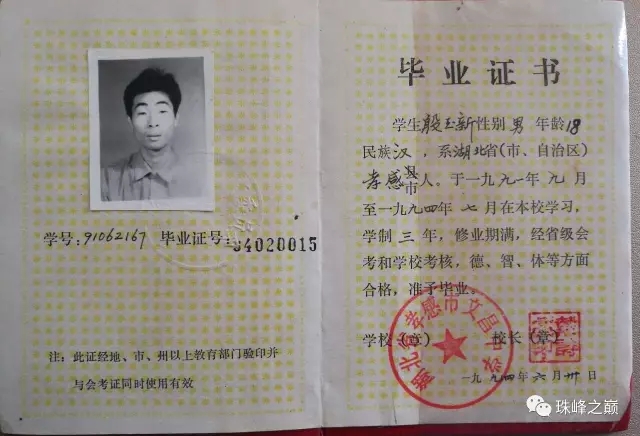 学号:91062167 毕业证号:94020015
注:此证经地、市、州以上教育部门验印并
与会考证同时使用有效
毕业证书
学生殷玉新性别男年龄18
民族汉,系湖北省(市、自治区)
孝感县市人。于一九九一年九月
至一九九四年七月在本校学习,
学制三年,修业期满,经省级会
考和学校考核,德、智、体等方面
合格,准予毕业。
学校(章) 校长(章)
湖北省孝感市文昌中学
一九九四年六月卅日
珠峰之巅